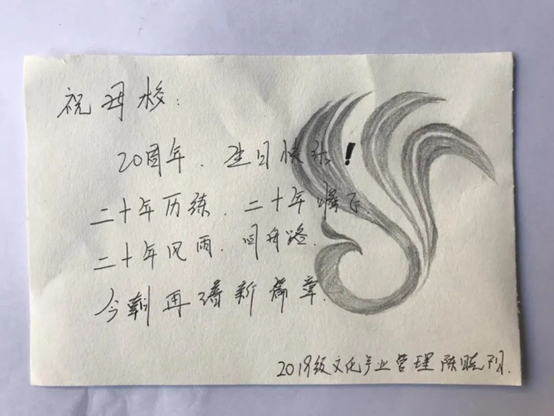 祝母校：
20周年，生日快乐！
二十年历练，二十年
二十年风雨，同舟路.
今朝再谱新篇章.
2019级文化产业管理 陈